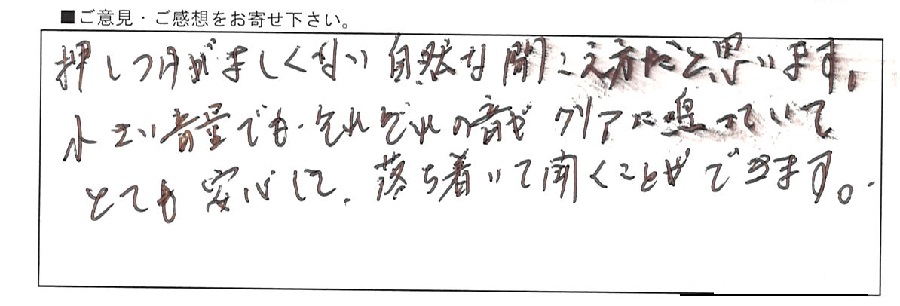 ■ご意見・ご感想をお寄せ下さい。
押しつけがましくない自然な聞こえ方だと思います。
小さい音量でも、それぞれの音がクリアに鳴っていて
とても安心して、落ち着いて聞くことができます。